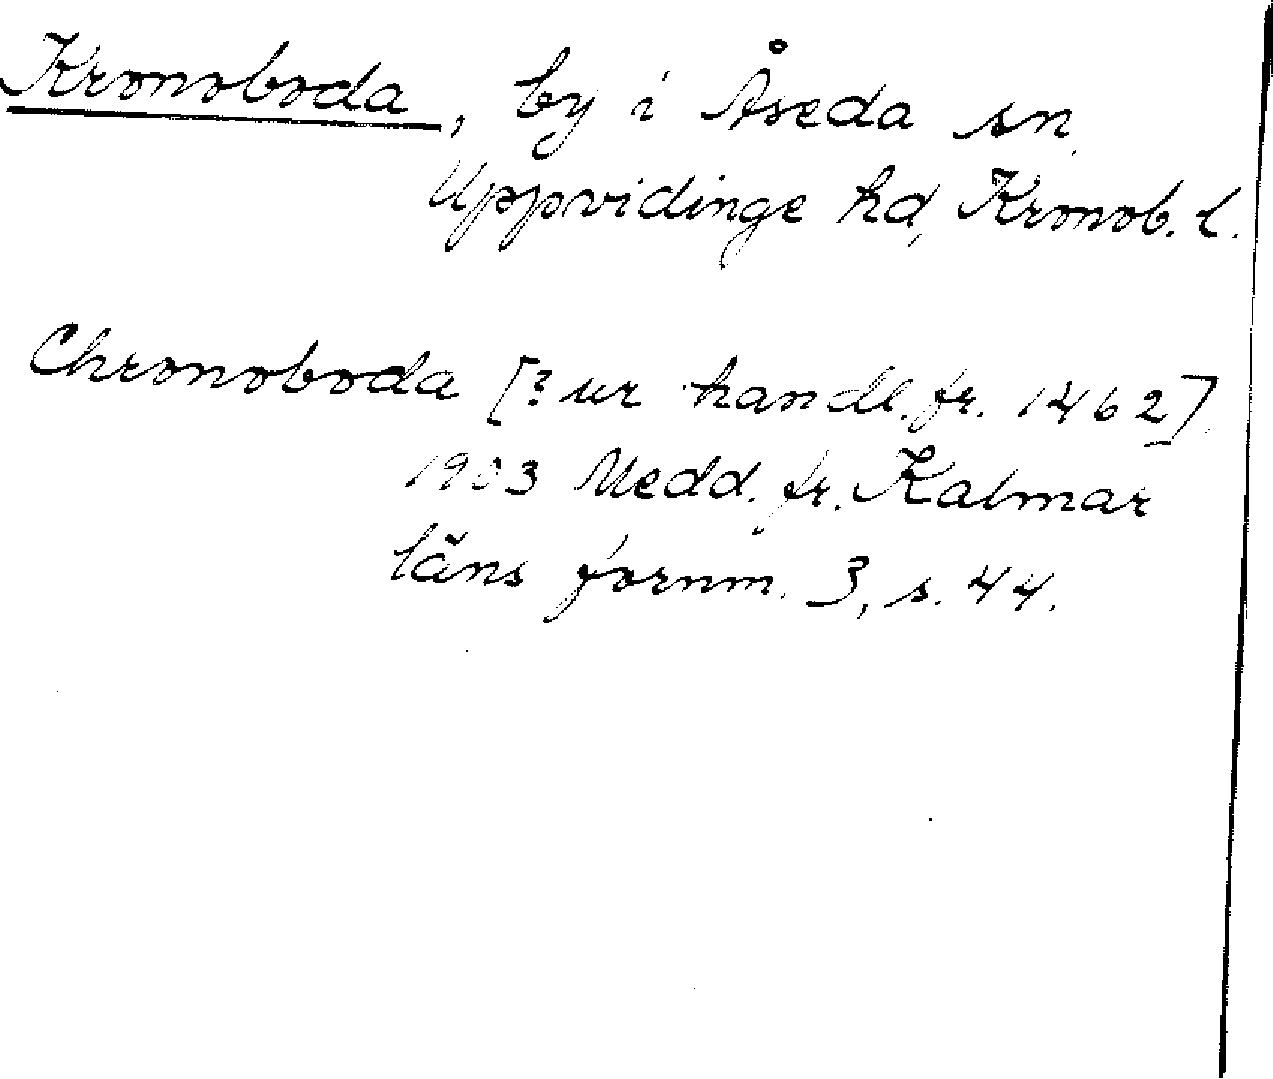 Kronoboda, by i Åseda sn,
Uppvidinge hd, Kronob. l.
Chronoboda [? ur handl. fr. 1462]
1903 Medd. fr. Kalmar
läns fornm. 3, s. 44.